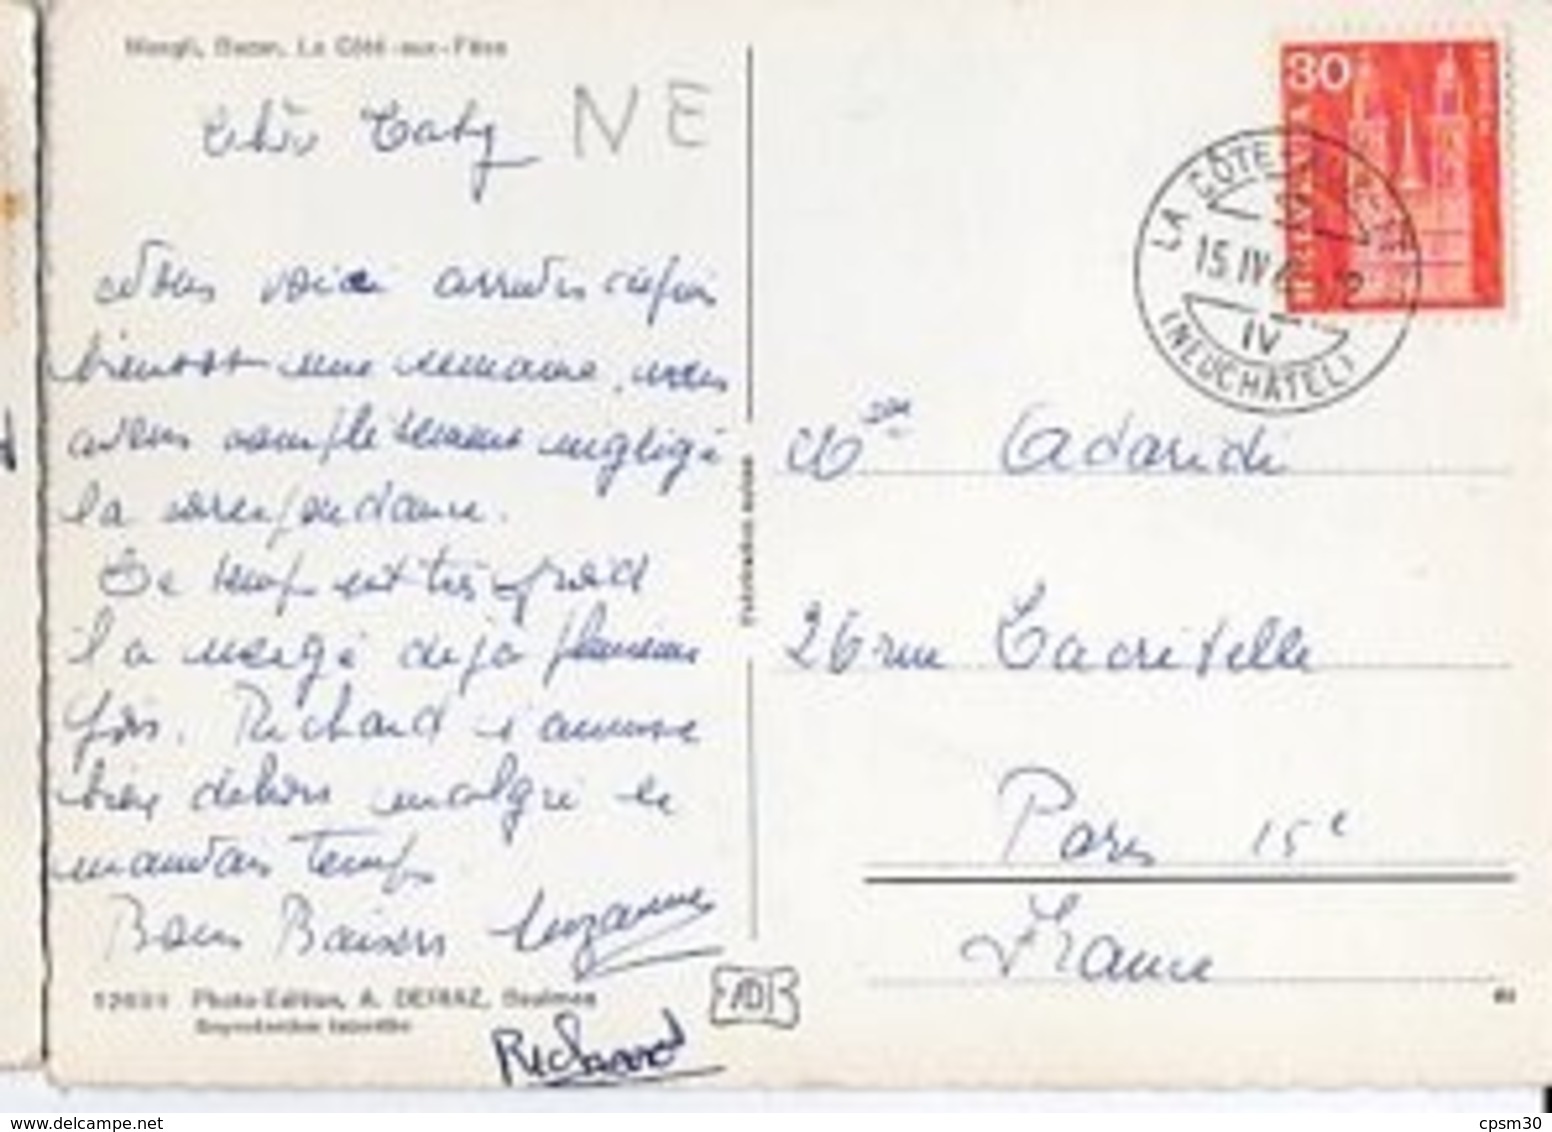 La Côte-aux-Fées
Chère Taty
NE
Nous voici arrivés depuis
bientôt une semaine, nous
avons complètement négligé
la correspondance.
Le temps est très froid
il a neigé déjà plusieurs
fois. Richard s'amuse
bien dehors malgré le
mauvais temps
Bons Baisers Suzanne
Photo-Edition, A. DERIAZ, Baulmes
Reproduction interdite
Richard
30
HELVETIA
LA CÔTE-AUX-FÉES
15.IV
IV
(NEUCHÂTEL)
Mme Adaridi
26 rue Lacretelle
Paris 15e
France
cpsm30